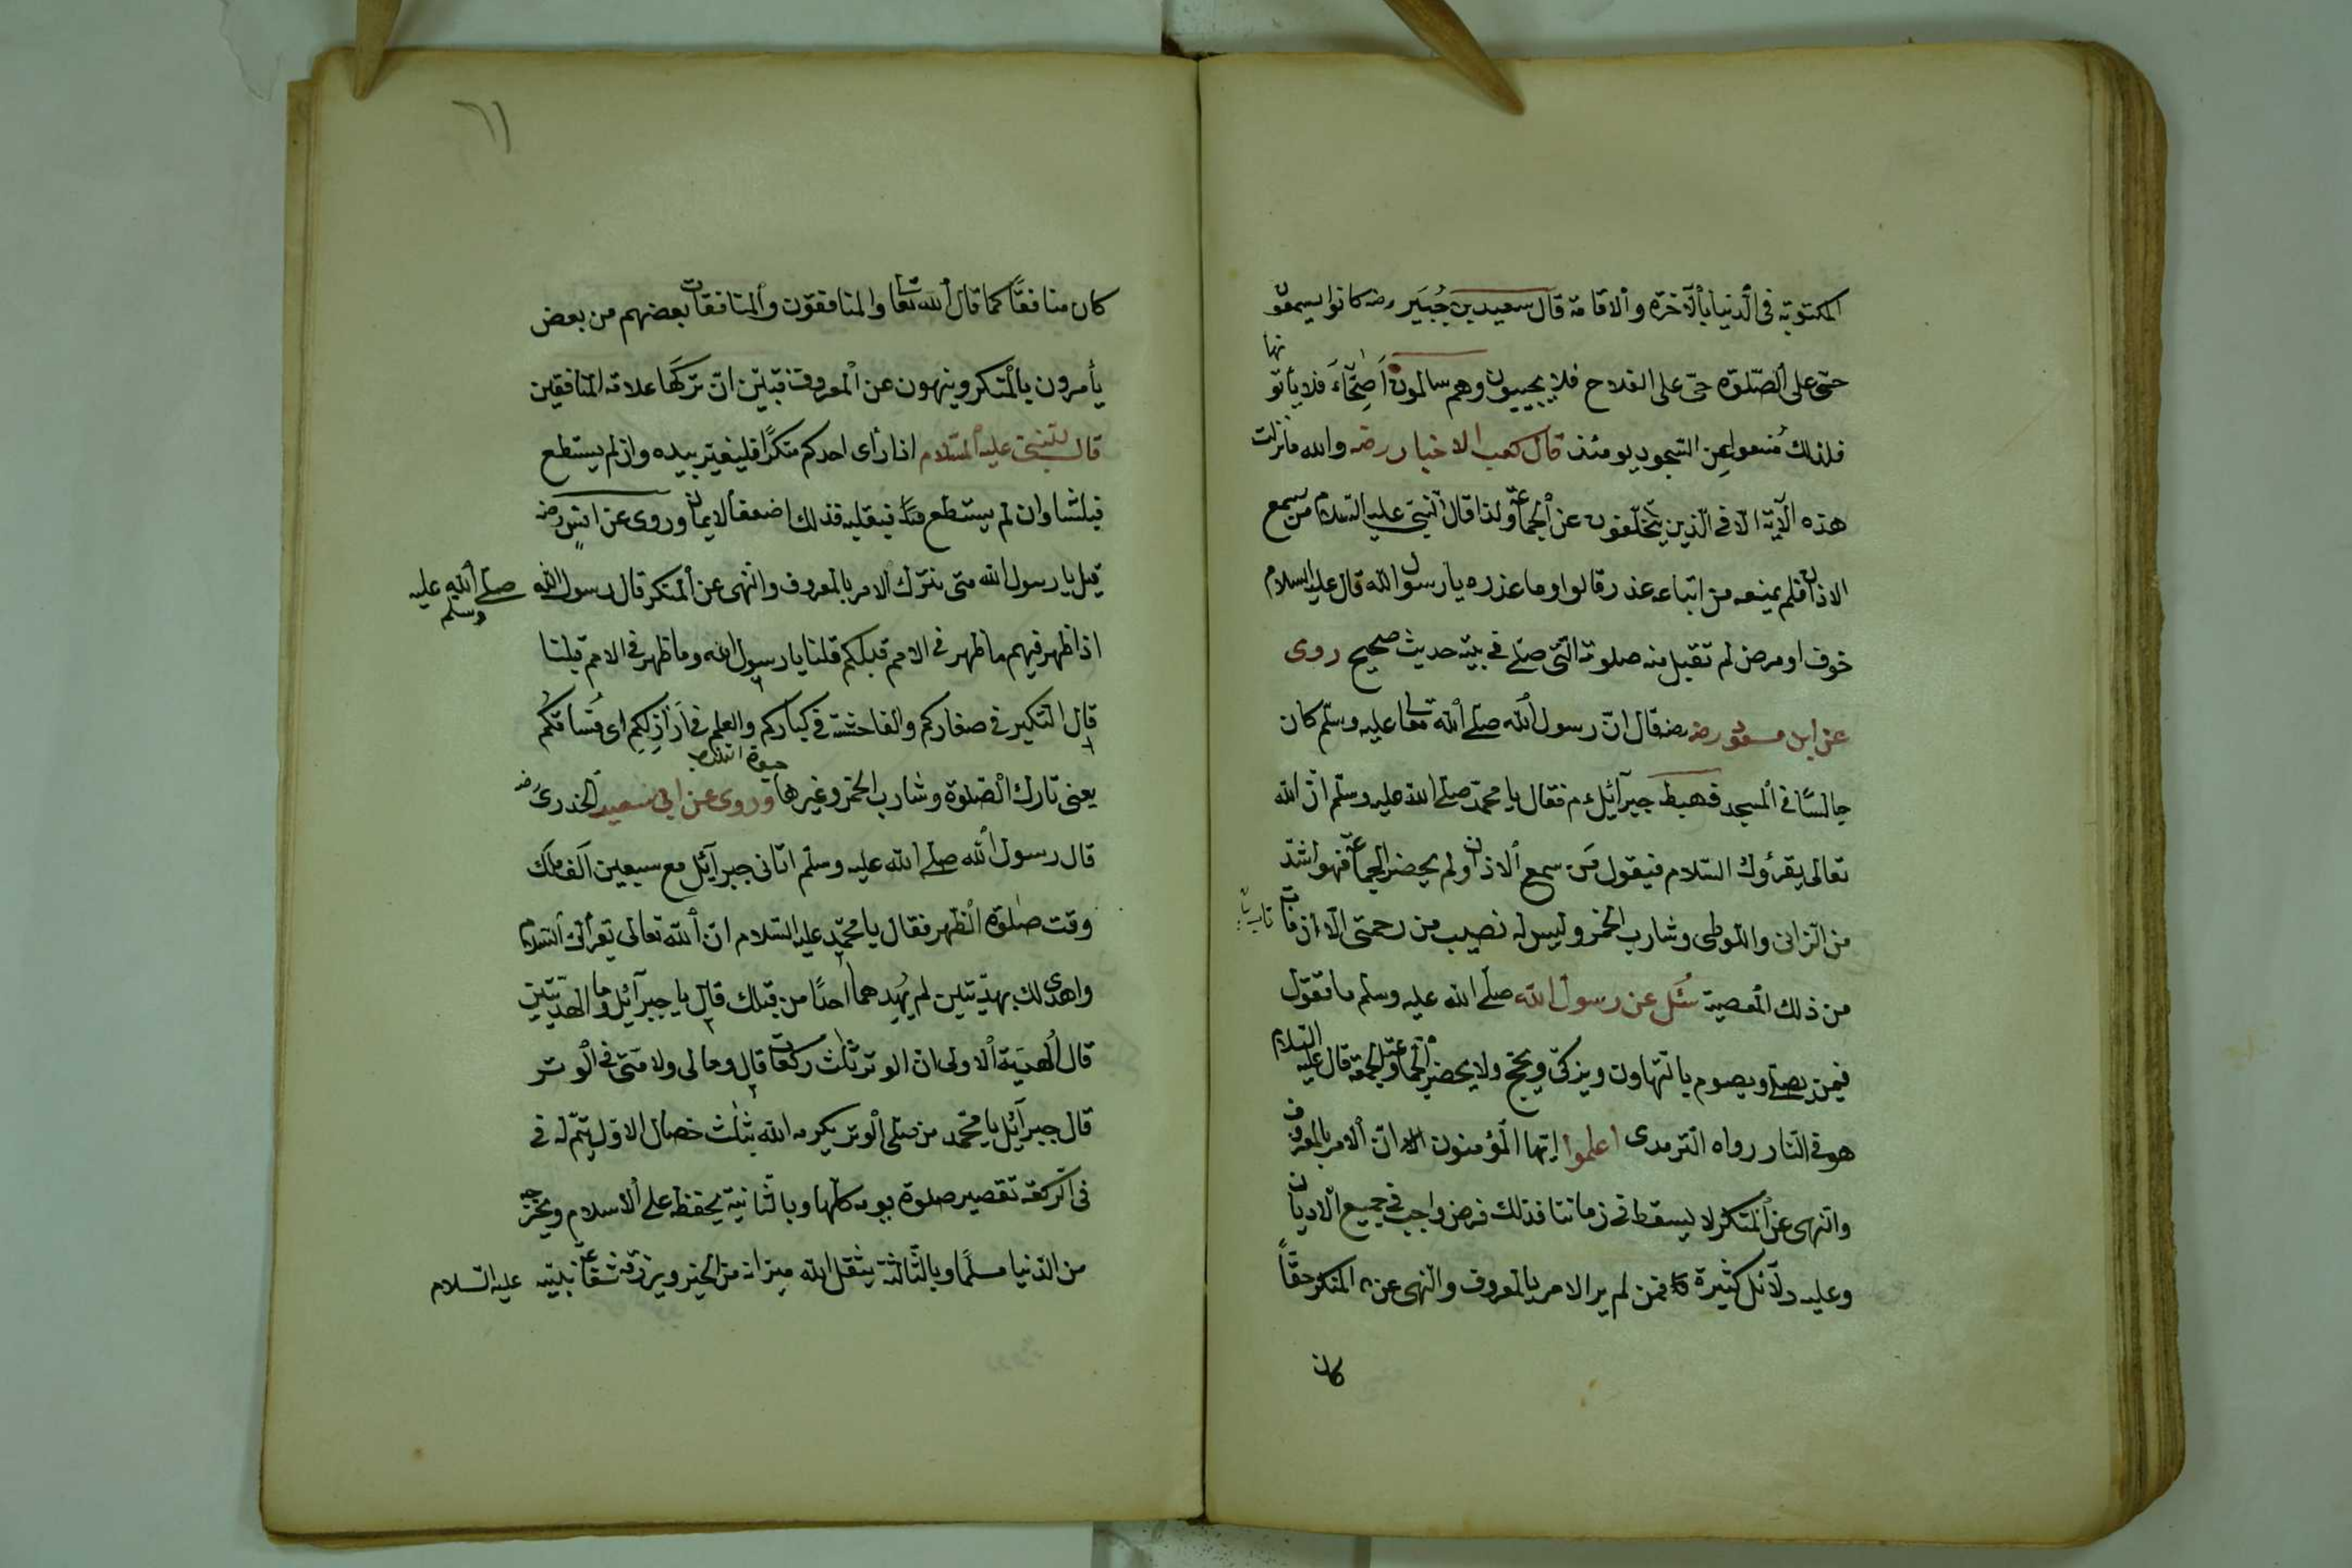 المكتوبة فى الدنيا بالآخرة والاقامة قال سعيد بن جُبَير رضه كانوا يسمعون
حىّ على الصّلوة حىّ على الفلاح فلا يجيبون وهم سالمون اَصِحّآءَ فلا يأتونها
فلذلك مُنعوا عن السّجود يومئذ قال كعب الاخبار رضه والله ما نزلت
هذه الآية الّا فى الّذين يتخلّفون عن الجماعة ولذا قال النبىّ عليه السلام من سمع
الاذان فلم يمنعه من اتباعه عذر قالوا وما عذره يا رسول الله قال عليه السلام
خوف او مرض لم تقبل منه صلوته الّتى صلّى فى بيته حديث صحيح روى
عن ابن مسعود رضه قال انّ رسول الله صلّى الله تعالى عليه وسلّم كان
جالسًا فى المسجد فهبط جبرآئيل ءم فقال يا محمّد صلّى الله عليه وسلّم انّ الله
تعالى يقرؤك السّلام فيقول مَن سمع الاذان ولم يحضر الجماعة فهو اشدّ
من الزانى واللّوطى وشارب الخمر وليس له نصيب من رحمتى الّا ان مات تاب
من ذلك المعصية سُئل عن رسول الله صلّى الله عليه وسلم ما تقول
فيمن يصلى ويصوم بالتهاون ويزكّى ويحجّ ولا يحضر الجماعة والجمعة قال عليه السلام
هو فى النّار رواه الترمدى اعلموا ايّها المؤمنون انّ الامر بالمعروف
والنّهى عن المنكر لا يسقط فى زماننا فذلك فرض واجب فى جميع الاديان
وعليه دلآئل كثيرة فمن لم ير الامر بالمعروف والنهى عن المنكر حقّاً
كان
٦١
كان منافقًا كما قال الله تعالى والمنافقون والمنافقات بعضهم من بعض
يأمرون بالمنكر وينهون عن المعروف فتبيّن انّ تركَها علامة المنافقين
قال النبىّ عليه السّلام اذا رأى احدكم منكرًا فليغيّر بيده وان لم يستطع
فبلسانه وان لم يستطع فبقلبه فذلك اضعف الايمان وروى عن انس رضه
قيل يا رسول الله متى نترك الامر بالمعروف والنهى عن المنكر قال رسول الله صلى الله عليه وسلم
اذا ظهر فيهم ما ظهر فى الامم قبلكم قلنا يا رسول الله وما ظهر فى الامم قبلنا
قال التكبر فى صغاركم والفاحشة فى كباركم والعلم فى اَرَاذِلِكم اى فُسّاقكُم
يعنى تارك الصّلوة وشارب الخمر وغيرها وروى عن ابى سعيد الخدرى رضه
قال رسول الله صلى الله عليه وسلم اتانى جبرآئيل مع سبعين اَلف ملَك
وقت صلوة الظّهر فقال يا محمّد عليه السّلام انّ الله تعالى يقرأك السّلام
واهدى لك بهديّتين لم يُهدِهما احدًا من قبلك قال يا جبرآئيل وما الهديّتين
قال الهدية الاولى ان الوتر ثلث ركعات قال ومالى ولامّتى فى الوتر
قال جبرآئيل يا محمّد من صلى الوتر يكرمه الله بثلث خصال الاوّل يتمّ له فى
فى الركعة تقصير صلوة يومه كلّها وبالثّانية يحفظه على الاسلام ويخرجه
من الدّنيا مسلمًا وبالثّالثة يثقل الله ميزانه من الخير ويرزقه شفاعة نبيّه عليه السّلام